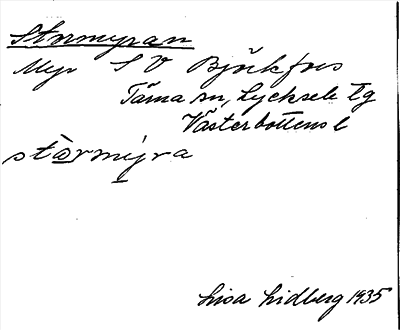 Stormyran
Myr S V Björkfors
Tärna sn, Lycksele tg
Västerbottens l
stòrmýra
Lisa Lidberg 1935